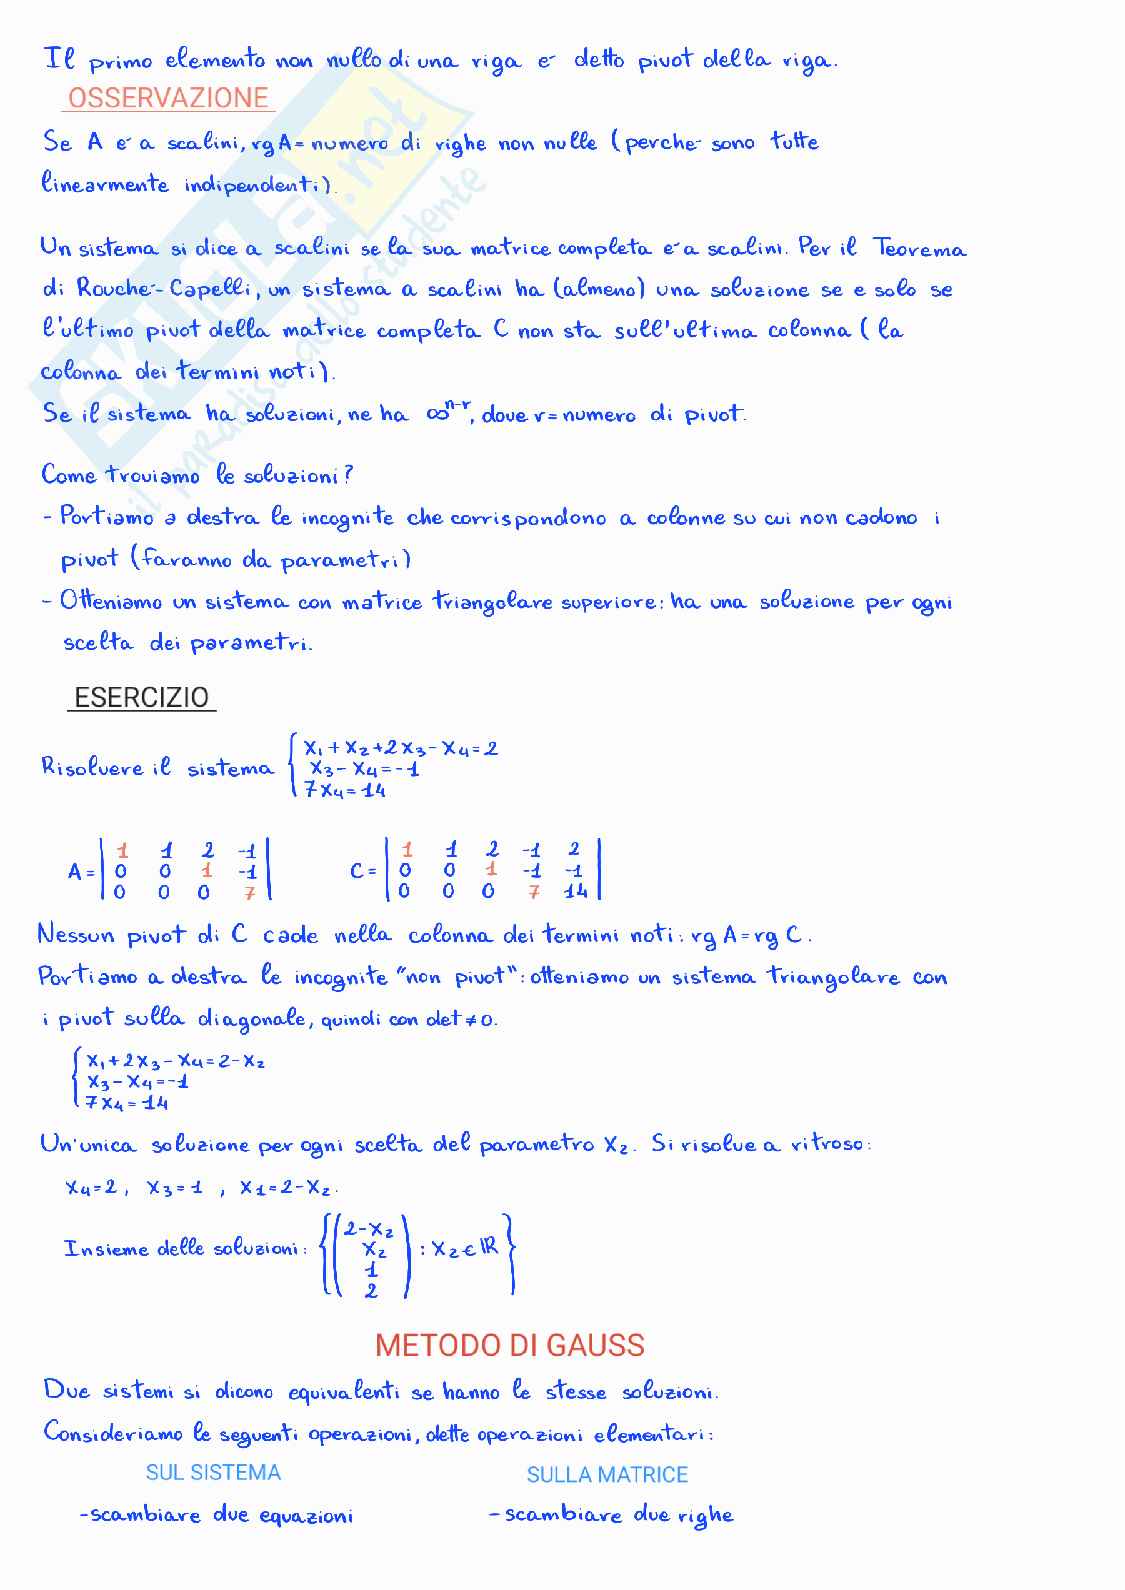 Il primo elemento non nullo di una riga e- detto pivot della riga.
OSSERVAZIONE
Se A e- a scalini, rgA= numero di righe non nulle (perche- sono tutte
linearmente indipendenti).
Un sistema si dice a scalini se la sua matrice completa e- a scalini. Per il Teorema
di Rouche- - Capelli, un sistema a scalini ha (almeno) una soluzione se e solo se
l'ultimo pivot della matrice completa C non sta sull'ultima colonna (la
colonna dei termini noti).
Se il sistema ha soluzioni, ne ha ∞ⁿ⁻ʳ, dove r= numero di pivot.
Come troviamo le soluzioni?
- Portiamo a destra le incognite che corrispondono a colonne su cui non cadono i
pivot (faranno da parametri)
- Otteniamo un sistema con matrice triangolare superiore: ha una soluzione per ogni
scelta dei parametri.
ESERCIZIO
x₁+x₂+2x₃-x₄=2
Risolvere il sistema { x₃-x₄=-1
7x₄=14
1 1 2 -1 1 1 2 -1 2
A= 0 0 1 -1 C= 0 0 1 -1 -1
0 0 0 7 0 0 0 7 14
Nessun pivot di C cade nella colonna dei termini noti: rg A=rg C.
Portiamo a destra le incognite "non pivot": otteniamo un sistema triangolare con
i pivot sulla diagonale, quindi con det≠0.
x₁+2x₃-x₄=2-x₂
{ x₃-x₄=-1
7x₄=14
Un'unica soluzione per ogni scelta del parametro x₂. Si risolve a ritroso:
x₄=2, x₃=1, x₁=2-x₂.
2-x₂
Insieme delle soluzioni: {( x₂ ) : x₂∈ℝ}
1
2
METODO DI GAUSS
Due sistemi si dicono equivalenti se hanno le stesse soluzioni.
Consideriamo le seguenti operazioni, dette operazioni elementari:
SUL SISTEMA SULLA MATRICE
-scambiare due equazioni - scambiare due righe
SKUOLA.net
il paradiso dello studente